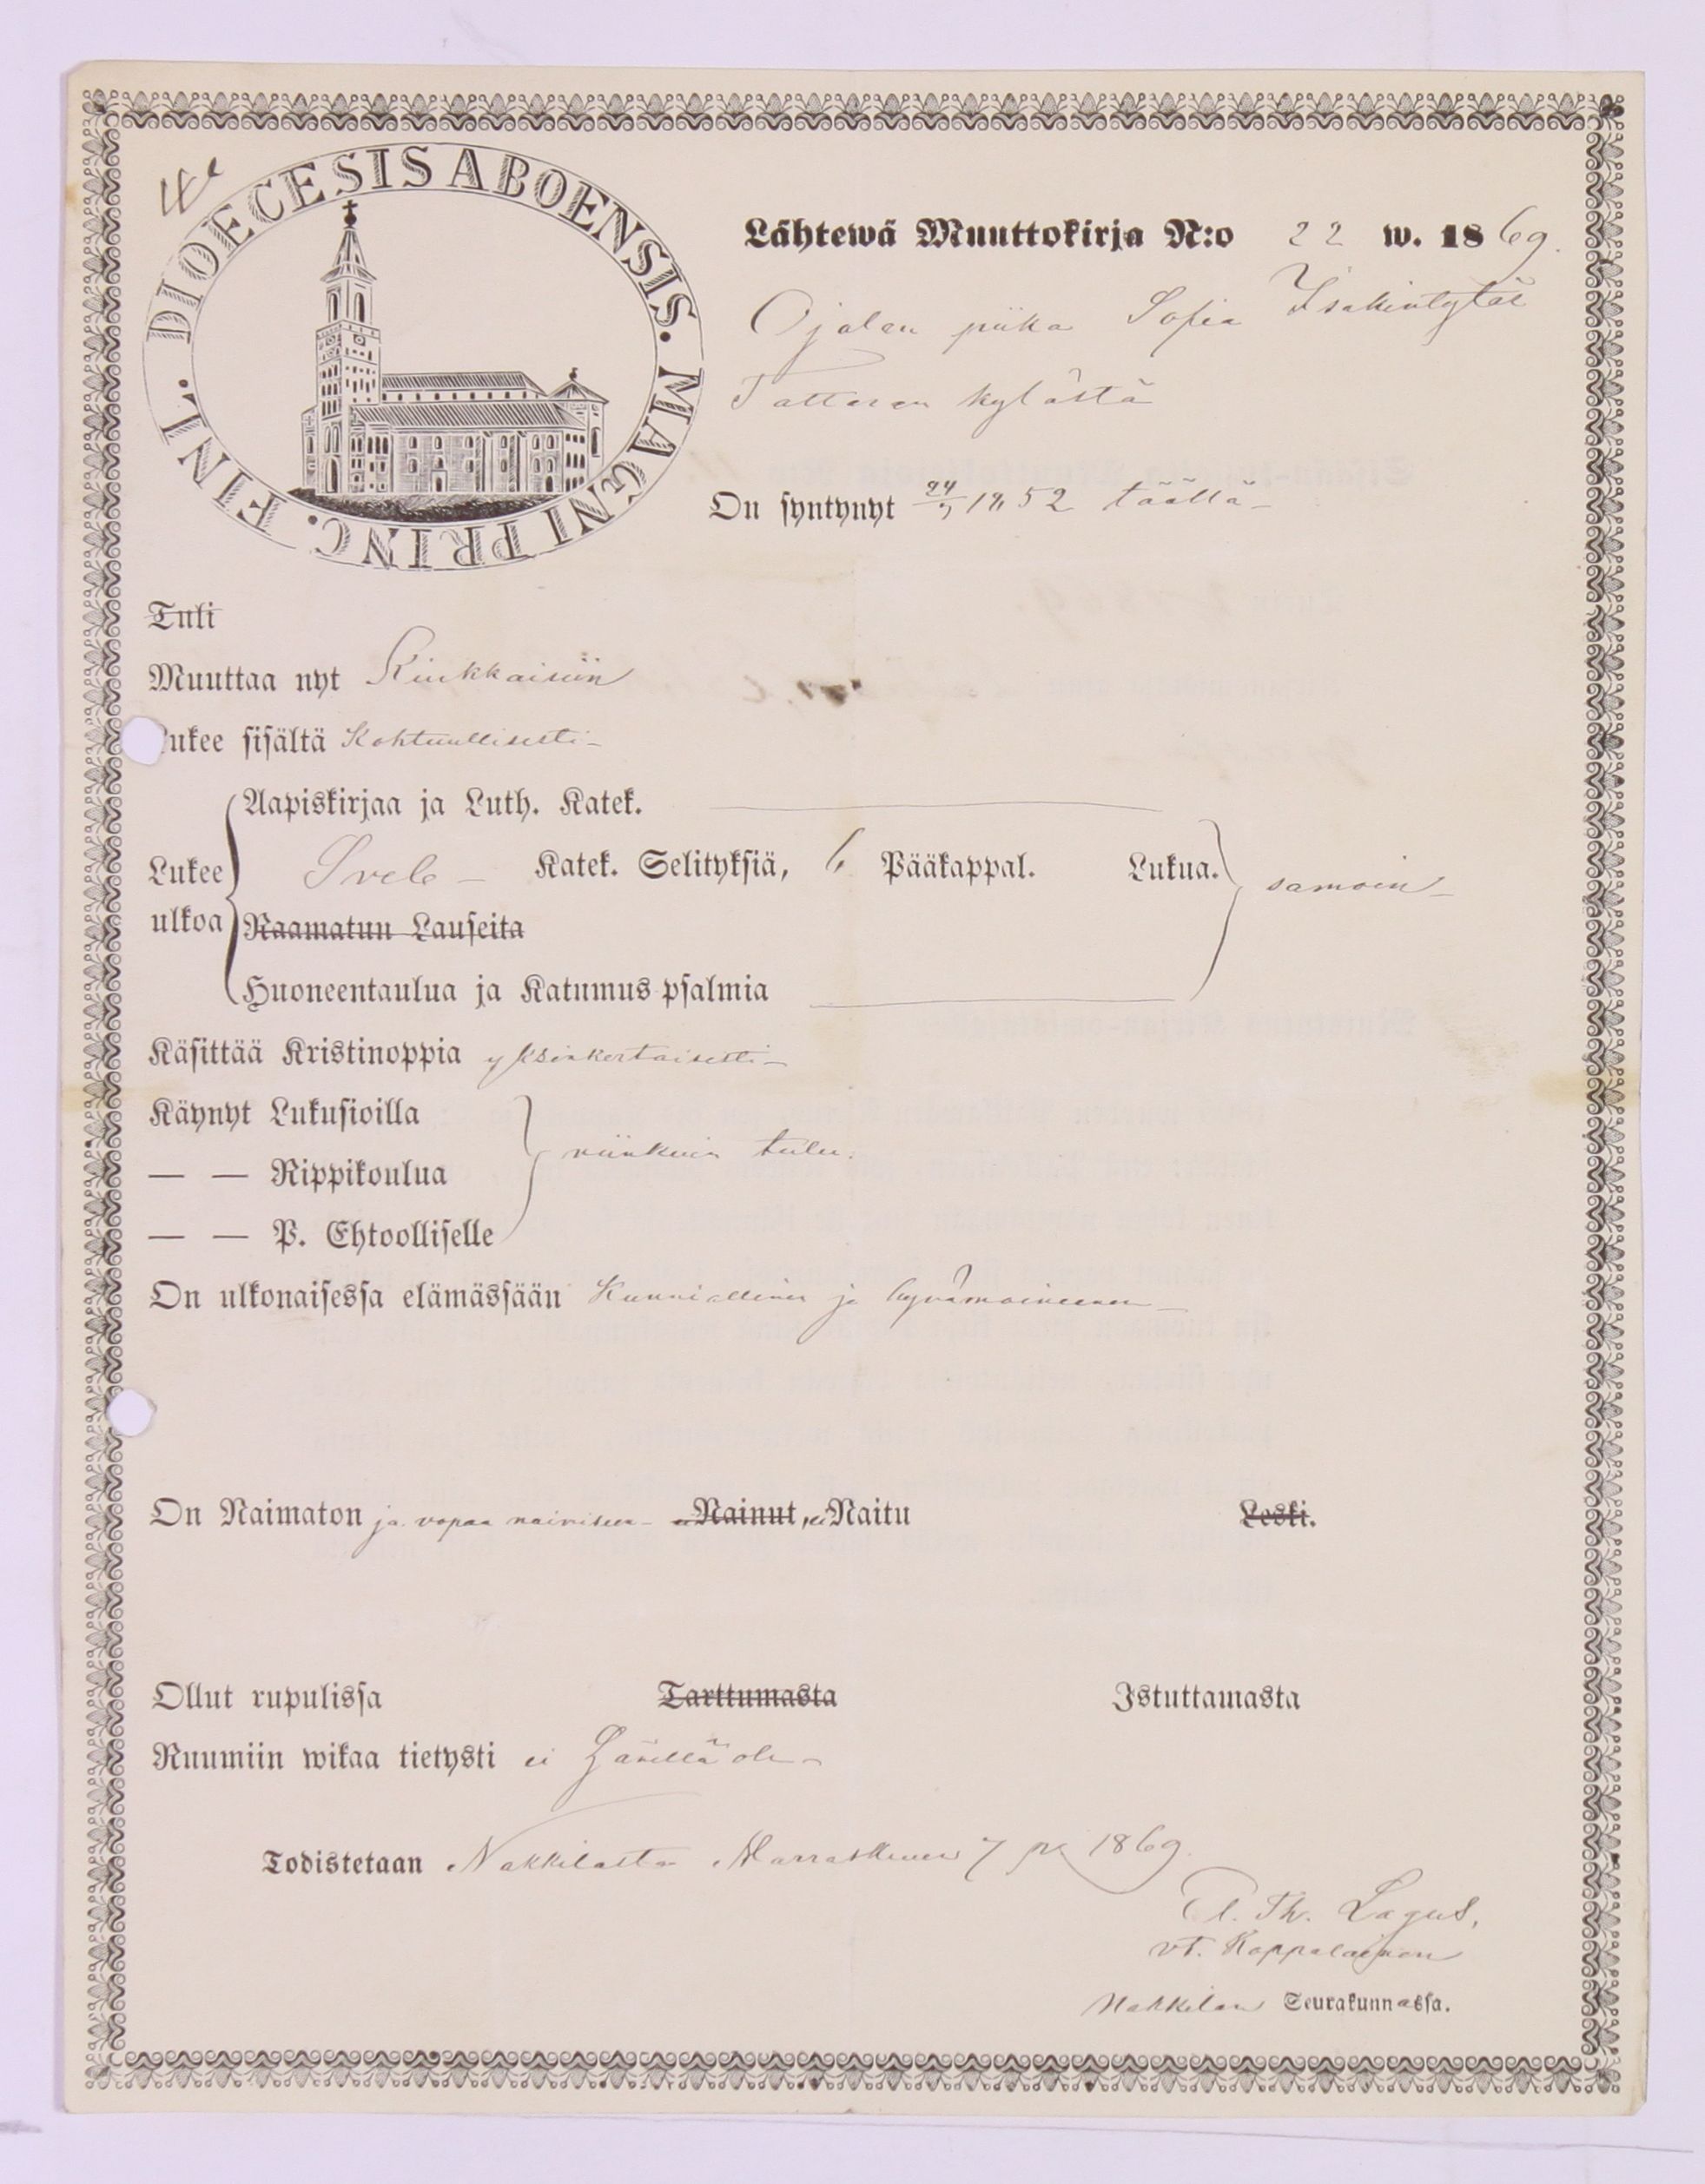 DIOECESIS ABOENSIS. MAGNI PRINC. FINL.
Lähtewä Muuttokirja N:o 22 w. 1869.
Ojalan piika Sofia Isakintytär
Tattaran kylästä
On syntynyt 24/5 1852 täällä
Tuli
Muuttaa nyt Kiukkaisiin
ukee sisältä Kohtuullisesti
Aapiskirjaa ja Luth. Katek.
Lukee ulkoa Sveb Katek. Selityksiä, 6 Pääkappal. Lukua. samoin
Raamatun Lauseita
Huoneentaulua ja Katumus psalmia
Käsittää Kristinoppia yksinkertaisesti
Käynyt Lukusioilla
— — Rippikoulua niinkuin tulee.
— — P. Ehtoolliselle
On ulkonaisessa elämässään Kunniallinen ja hyvämaineinen
On Naimaton ja vapaa naimiseen Nainut, ei Naitu Leski.
Ollut rupulissa Tarttumasta Istuttamasta
Ruumiin wikaa tietysti ei hänellä ole
Todistetaan Nakkilasta Marraskuun 7 p. 1869.
Th. Lagus,
vt. Kappalainen
Nakkilan Seurakunnassa.